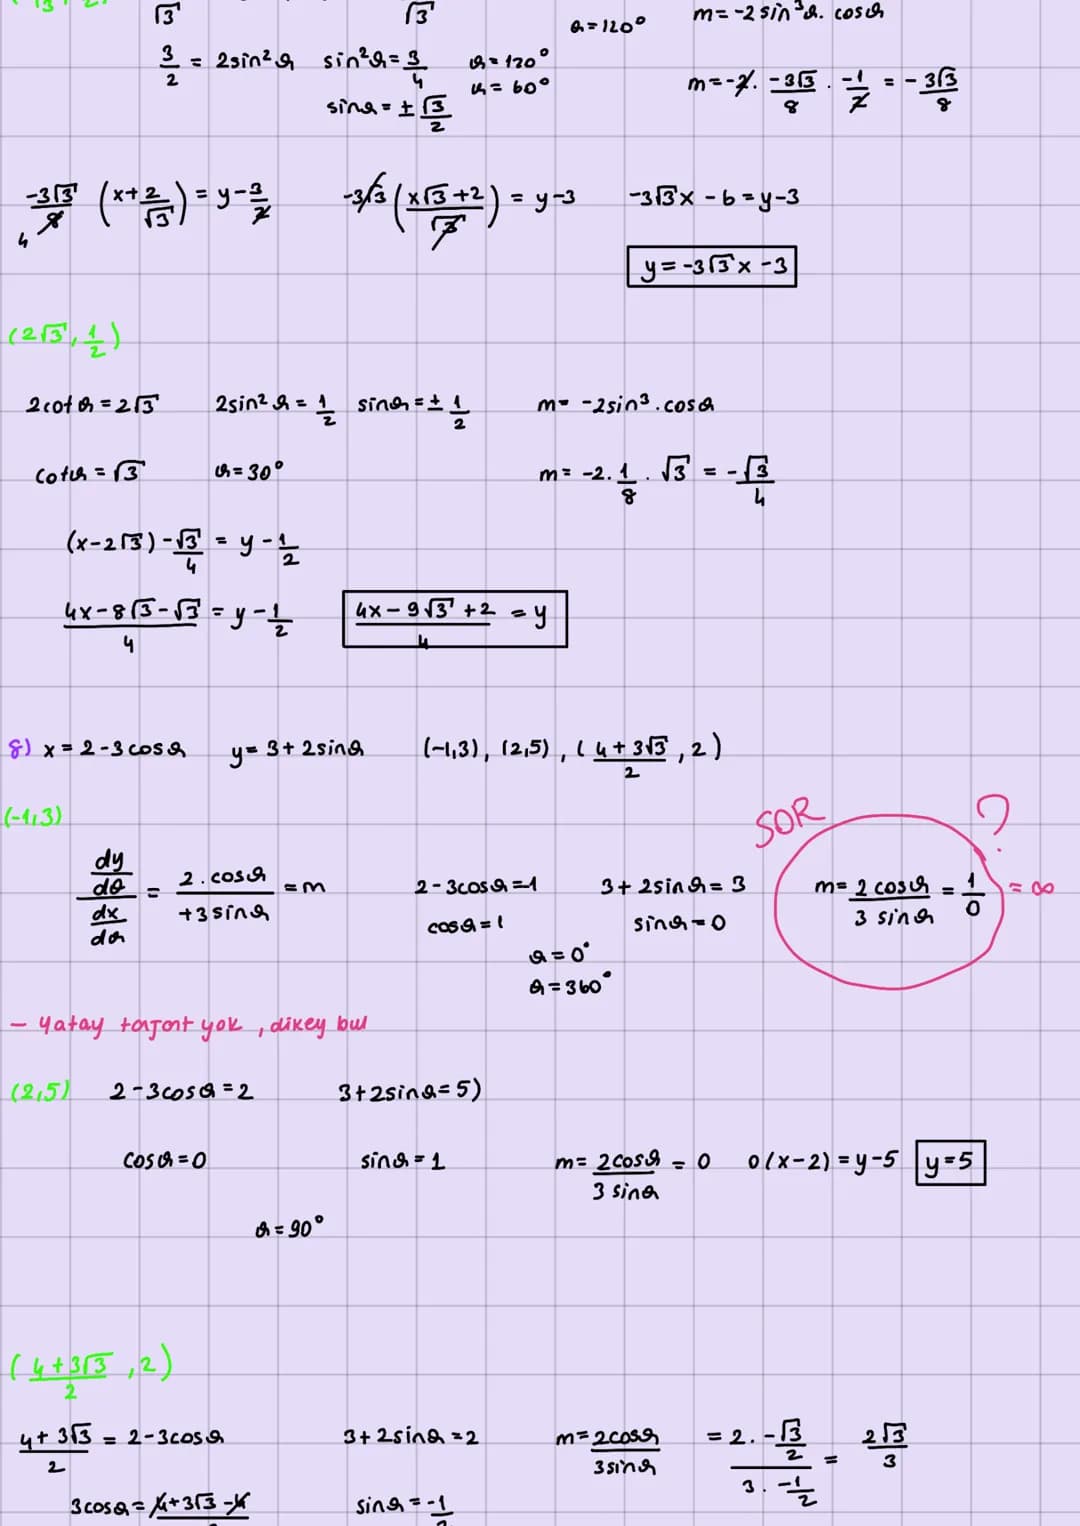 √3 √3 θ=120° m=-2sin³θ.cosθ
3/2 = 2sin²θ sin²θ=3/4 θ=120°
θ=60°
sinθ=±√3/2
m=-2.-3√3/8.-1/2 = -3√3/8
-3√3/8 (x+2/√3) = y-3/2 -3√3 (x√3+2/√3) = y-3 -3√3x-6=y-3
4
y=-3√3x-3
(2√3, 1/2)
2cotθ=2√3 2sin²θ=1/2 sinθ=±1/2 m=-2sin³.cosθ
cotθ=√3 θ=30° m=-2.1/8.√3 = -√3/4
(x-2√3)-√3/4 = y-1/2
4x-8√3-√3/4 = y-1/2 4x-9√3+2/4 = y
8) x=2-3cosθ y=3+2sinθ (-1,3), (2,5), (4+3√3/2, 2)
(-1,3)
SOR ?
dy/dθ / dx/dθ = 2.cosθ/+3sinθ = m 2-3cosθ=-1 3+2sinθ=3 m=2cosθ/3sinθ=1/0 = ∞
cosθ=1 sinθ=0
θ=0°
θ=360°
- Yatay teğet yok, dikey bul
(2,5) 2-3cosθ=2 3+2sinθ=5)
cosθ=0 sinθ=1 m=2cosθ/3sinθ=0 0(x-2)=y-5 y=5
θ=90°
(4+3√3/2, 2)
4+3√3/2 = 2-3cosθ 3+2sinθ=2 m=2cosθ/3sinθ = 2.-√3/2 / 3.-1/2 = 2√3/3
3cosθ=4+3√3-4 sinθ=-1